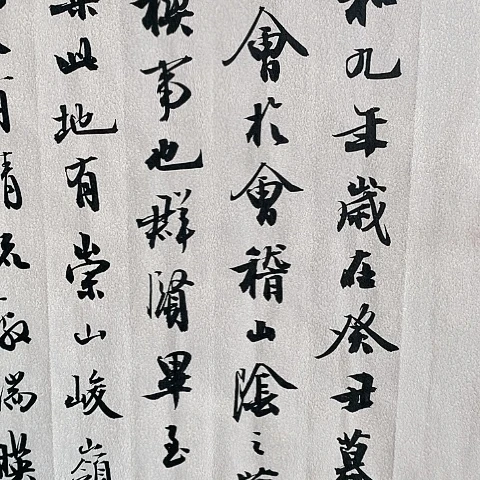 和九年歲在癸丑暮
會於會稽山陰之蘭
禊事也群賢畢至
集此地有崇山峻嶺
有清流激湍映